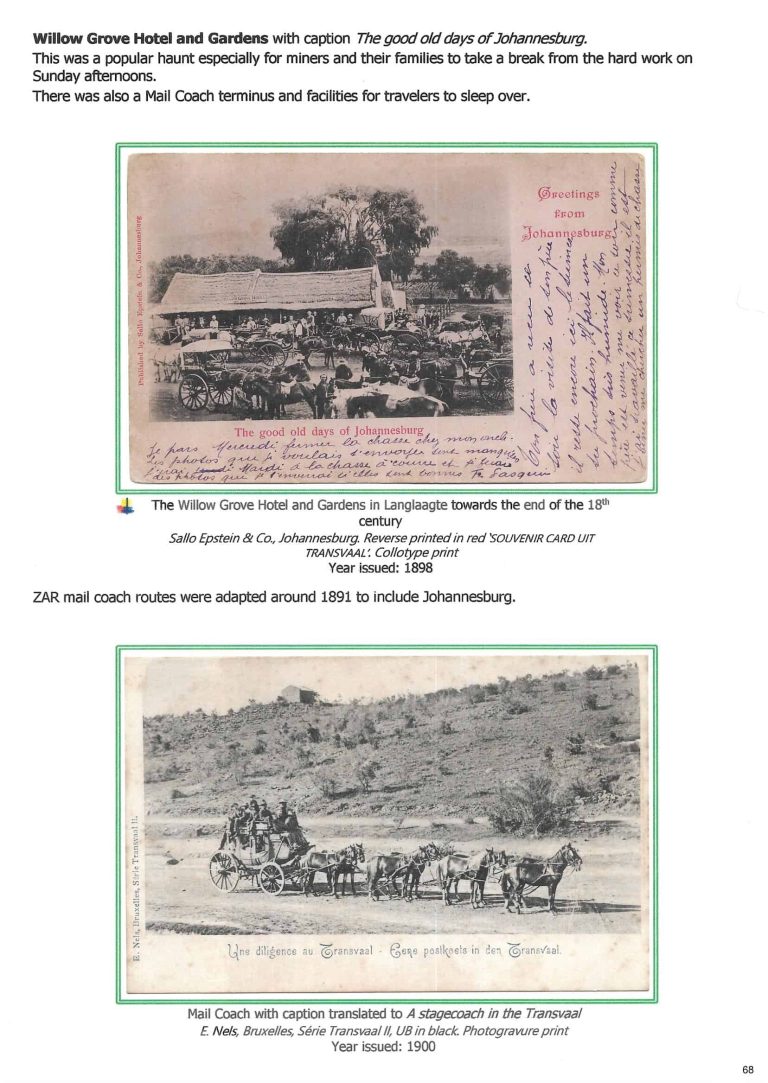 Willow Grove Hotel and Gardens with caption The good old days of Johannesburg.
This was a popular haunt especially for miners and their families to take a break from the hard work on
Sunday afternoons.
There was also a Mail Coach terminus and facilities for travelers to sleep over.
Published by Sallo Epstein & Co., Johannesburg
Greetings
from
Johannesburg
The good old days of Johannesburg
Je pars Mercredi fermer la chasse chez mon oncle.
Les photos que je voulais t'envoyer sont
J'irai Mardi à la chasse à courre et je
des photos que je t'enverrai si elles sont bonnes
The Willow Grove Hotel and Gardens in Langlaagte towards the end of the 18th
century
Sallo Epstein & Co., Johannesburg. Reverse printed in red 'SOUVENIR CARD UIT
TRANSVAAL'. Collotype print
Year issued: 1898
ZAR mail coach routes were adapted around 1891 to include Johannesburg.
E. Nels, Bruxelles, Série Transvaal II.
Une diligence au Transvaal - Eene postkoets in den Transvaal.
Mail Coach with caption translated to A stagecoach in the Transvaal
E. Nels, Bruxelles, Série Transvaal II, UB in black. Photogravure print
Year issued: 1900
68